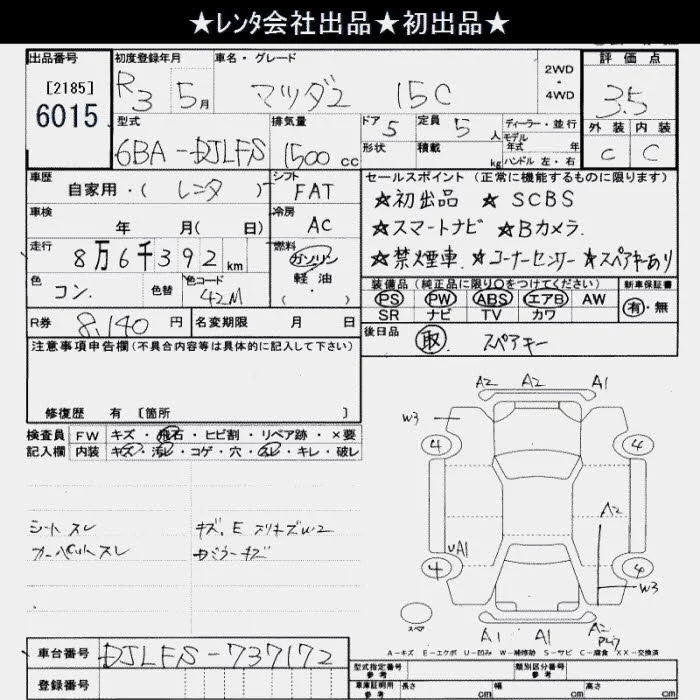 ★レンタ会社出品★初出品★
出品番号 初度登録年月 車名・グレード 2WD・4WD 評価点
[2185]
6015
R3 5月 マツダ2 15C 3.5
型式 排気量 ドア 定員 ディーラー・並行 外装 内装
6BA-DJLFS 1500cc 5 5人 モデル年式 年 C C
形状 積載 kg ハンドル 左・右
車歴 シフト セールスポイント (正常に機能するものに限ります)
自家用・(レンタ) FAT ★初出品 ★SCBS
車検 冷房 ★スマートナビ ★Bカメラ
年 月(日) AC
走行 燃料 ★禁煙車 ★コーナーセンサー ★スペアキーあり
8万6千392km ガソリン
軽油
・( )
色 色替 色コード 装備品 (純正品に限り○をつけてください) 新車保証書
コン. 42M PS PW ABS エアB AW 有・無
SR ナビ TV カワ
R券 8,140円 名変期限 月 日 後日品 取 スペアキー
注意事項申告欄(不具合内容等は具体的に記入して下さい)
修復歴 有 [箇所 ]
検査員 FW キズ・飛石・ヒビ割・リペア跡・×要
記入欄 内装 キズ・汚レ・コゲ・穴・スレ・キレ・破レ
シートスレ キズ、E スリキズW2
A2 A2 A1
W3
4 4
A2
UA1
4 4
W3
スペア
A1 A1
A-キズ E-エクボ U-凹み W-補修跡 S-サビ C-腐食 XX-交換済
車台番号 DJLFS-737172 型式指定番号 参考 類別区分番号 参考
登録番号 車庫証明用 参考 長さ cm 幅 cm 高さ cm